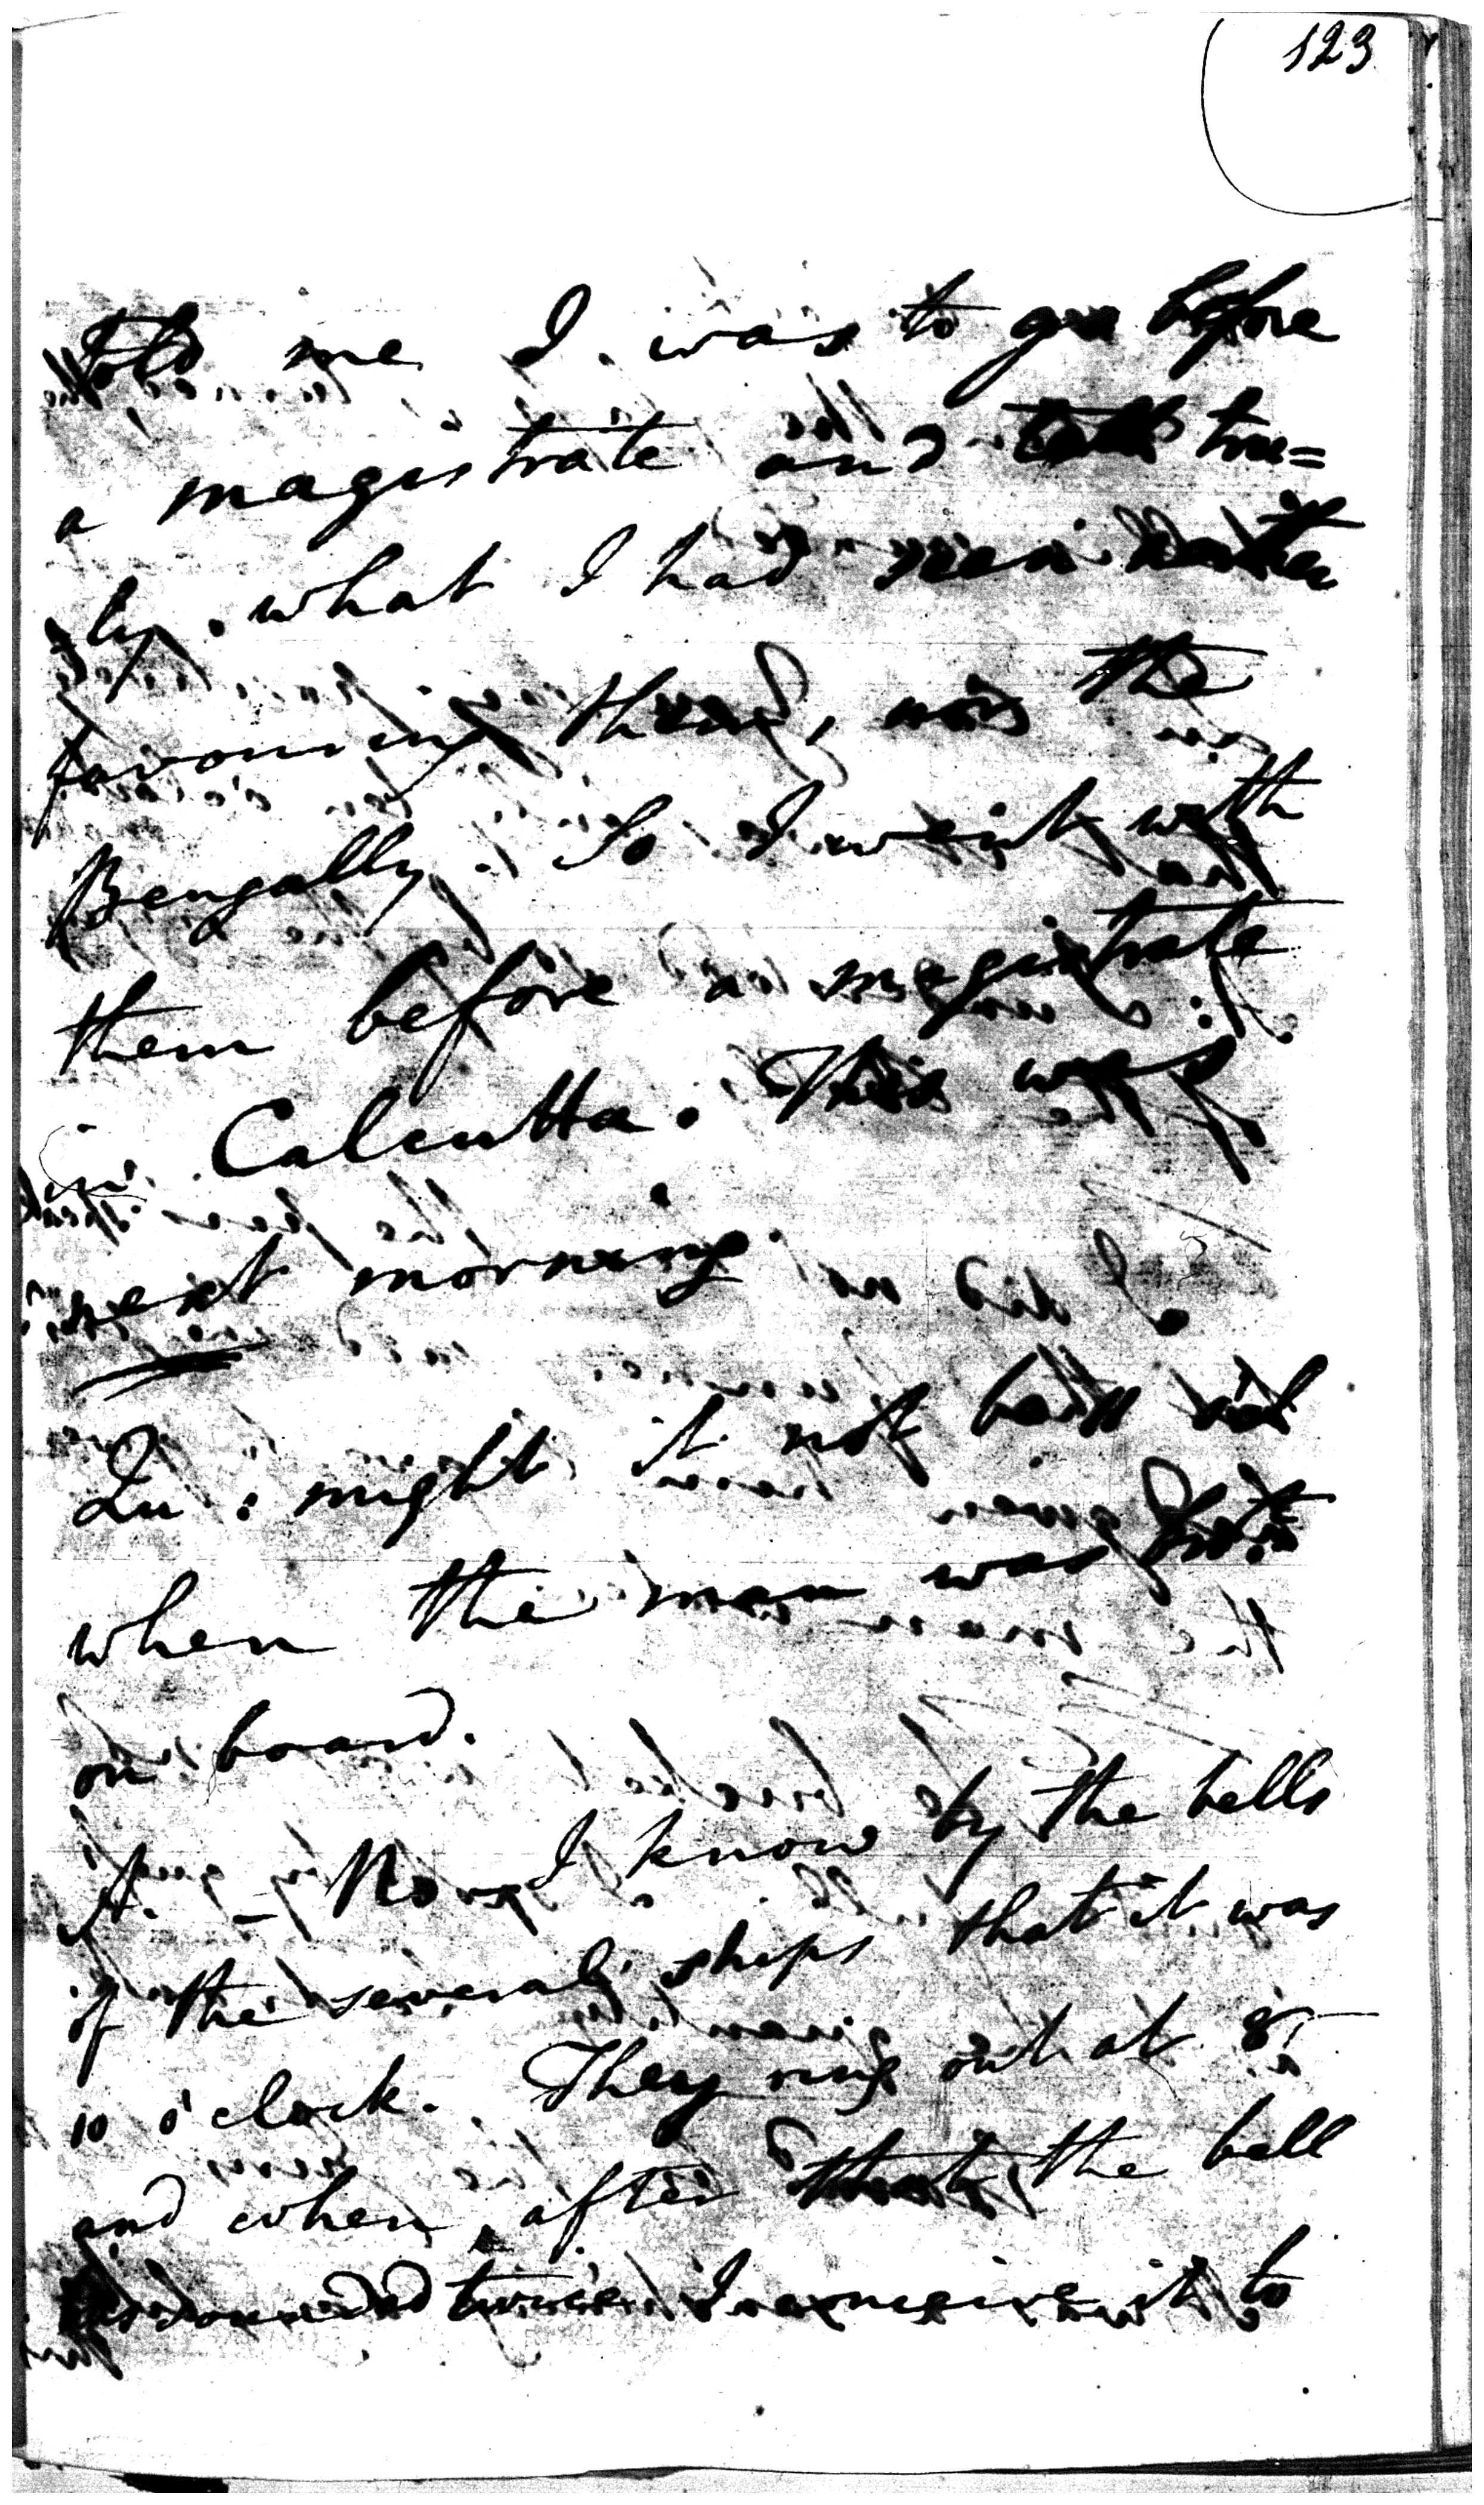 123
told me I was to go before
a magistrate and tell tru=
ly what I had seen neither
favouring them, nor the
Bengally. So I went with
them before a magistrate
in Calcutta. This was
next morning.
Qu: might it not be
when the man was
on board.
A. - No I know by the bells
of the several ships that it was
10 o'clock. They ring out at 8
and when after that the bell
sounded twice I conceive it to